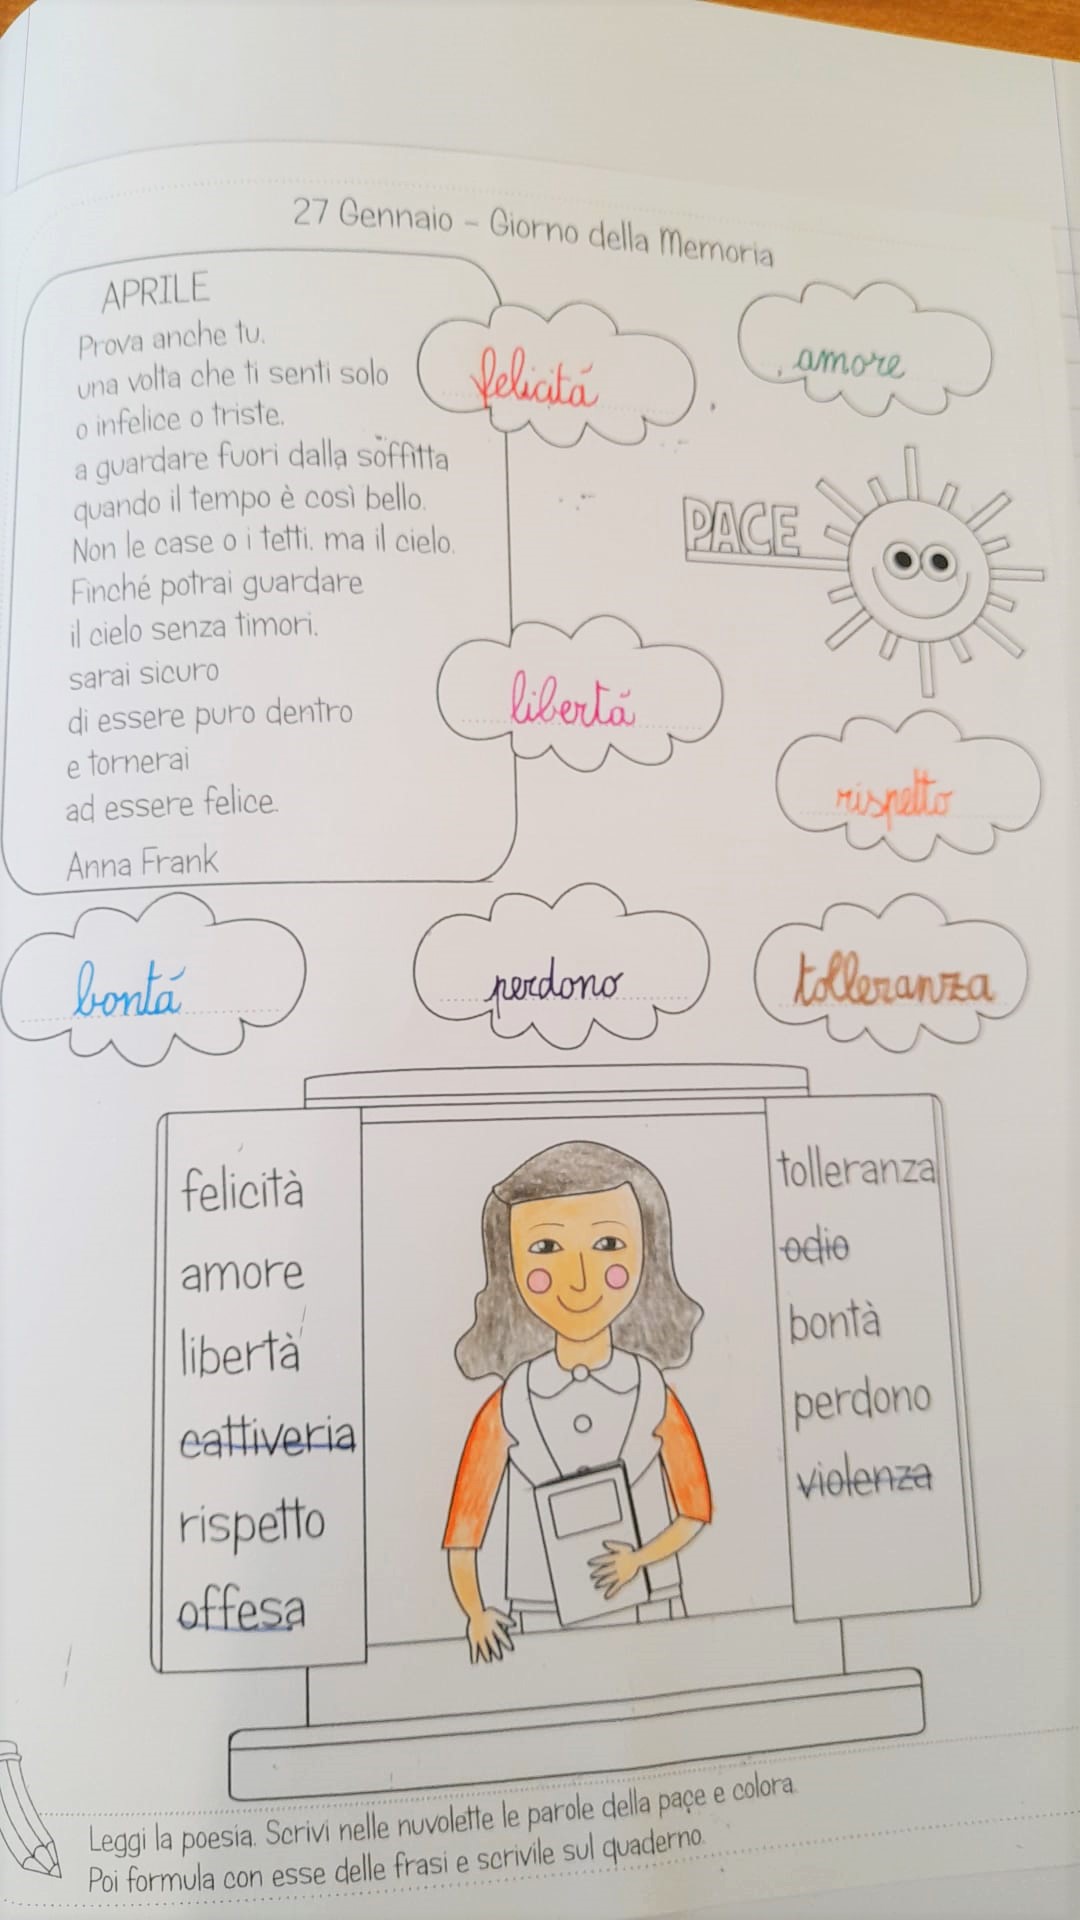 27 Gennaio - Giorno della Memoria
APRILE
Prova anche tu,
una volta che ti senti solo
o infelice o triste,
a guardare fuori dalla soffitta
quando il tempo è così bello.
Non le case o i tetti, ma il cielo.
Finché potrai guardare
il cielo senza timori,
sarai sicuro
di essere puro dentro
e tornerai
ad essere felice.
Anna Frank
felicitá
amore
PACE
libertá
rispetto
bontá
perdono
tolleranza
felicità
amore
libertà
cattiveria
rispetto
offesa
tolleranza
odio
bontà
perdono
violenza
Leggi la poesia. Scrivi nelle nuvolette le parole della pace e colora.
Poi formula con esse delle frasi e scrivile sul quaderno.